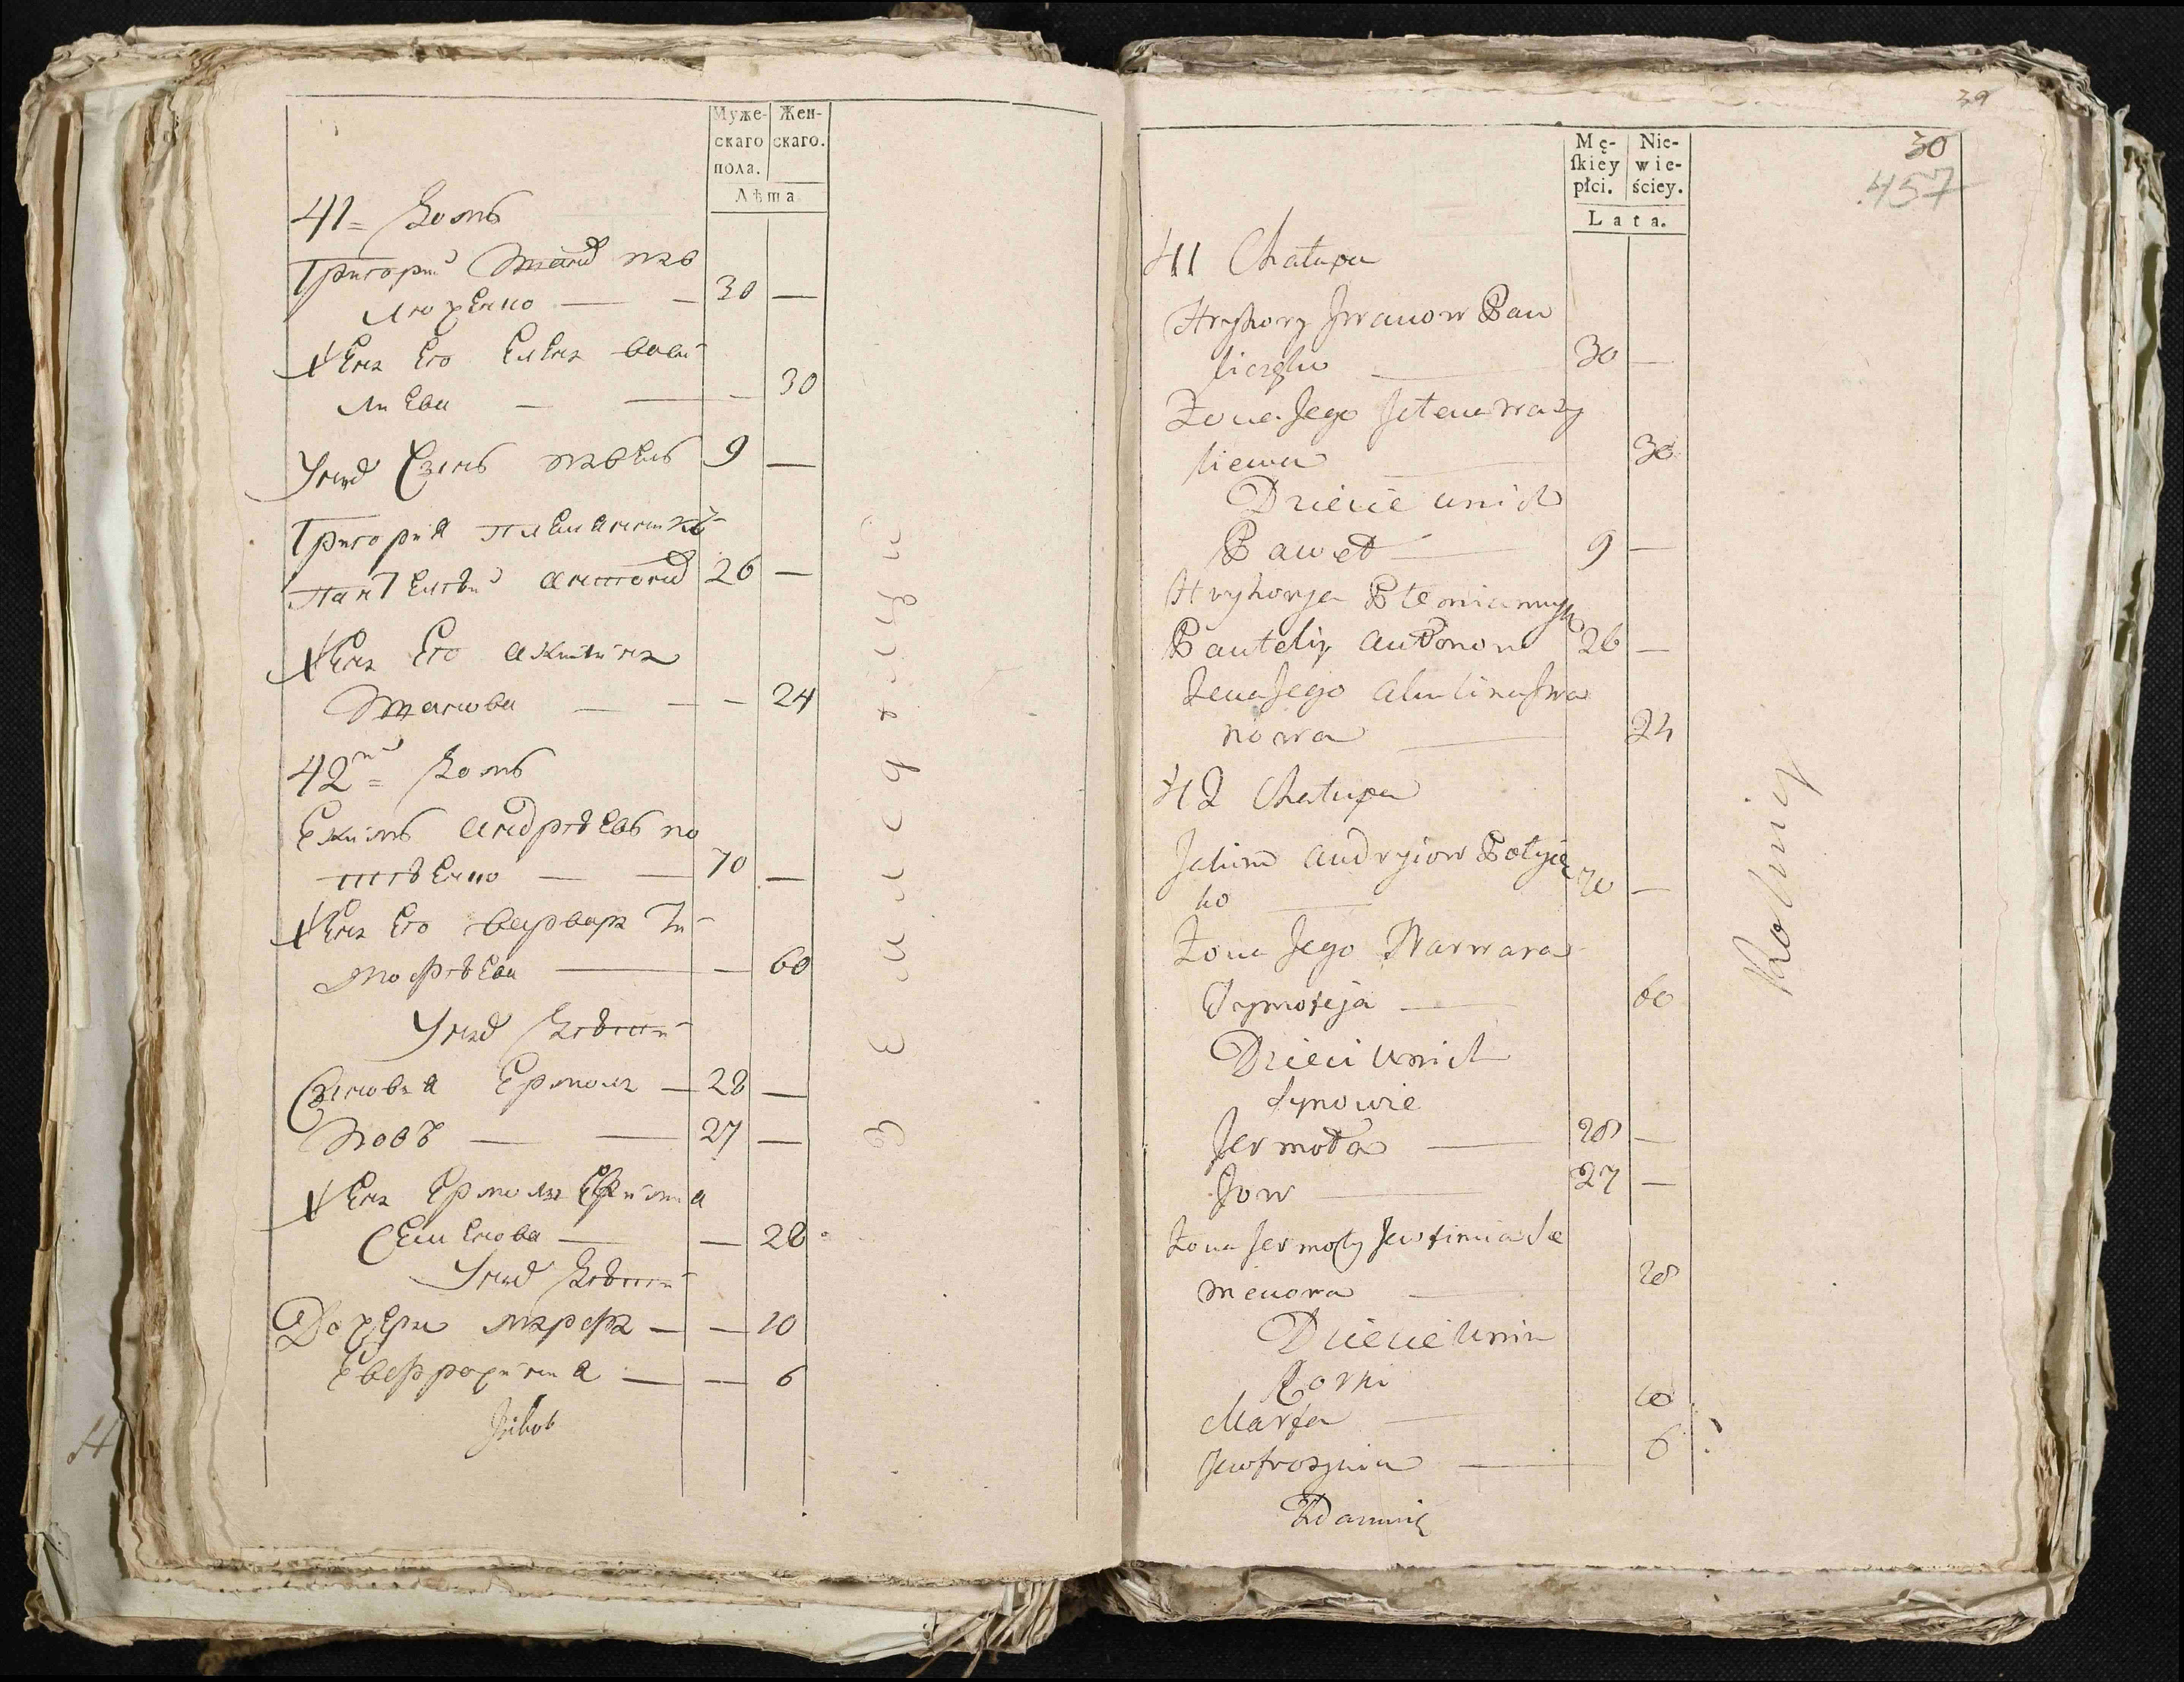 Муже-
скаго
пола.
Жен-
скаго.
Лѣта
41 = Домъ
Григорій
30 —
Жена Его Елена Васи-
лиева — 30
У нихъ Сынъ Павелъ 9 —
Григорія племянникъ
Пантелѣй Антоновъ 26 —
Жена Его Акилина
Иванова — — — 24
42й = Домъ
Екимъ Андрѣевъ По
тѣенко — — 70 —
Жена Его Варвара Ти-
мофѣева — — 60
У нихъ Дѣти
Сыновья Ермола — 28 —
Иовъ — — 27 —
Жена Ермолы Ефимия
Семенова — — 28
У нихъ Дѣти
Дочери Марфа — — 10
Евфросиния — — 6
39
30
457
Mę-
ſkiey
płci.
Nie-
wie-
ściey.
Lata.
41 Chałupa
Hryhory Jwanow Pau
30 —
Zona Jego Jelena Wasy
liewa — 30
Dziecie u nich
Paweł — 9 —
Hryhorya Plemiannik
Panteliy Antonow 26 —
Zona Jego Akulina Jwa
nowa — 24
42 Chałupa
Jakim Andryiow Potyie
ko — 70 —
Zona Jego Warwara
Tymofeja — 60
Dzieci u nich
Synowie
Jermoła — 28 —
Jow — 27 —
Zona Jermoły Jewfimia Se
menowa — 28
Dziecie u nich
Corki
Marfa — 10
Jewfrozynia — 6
Rolnicy